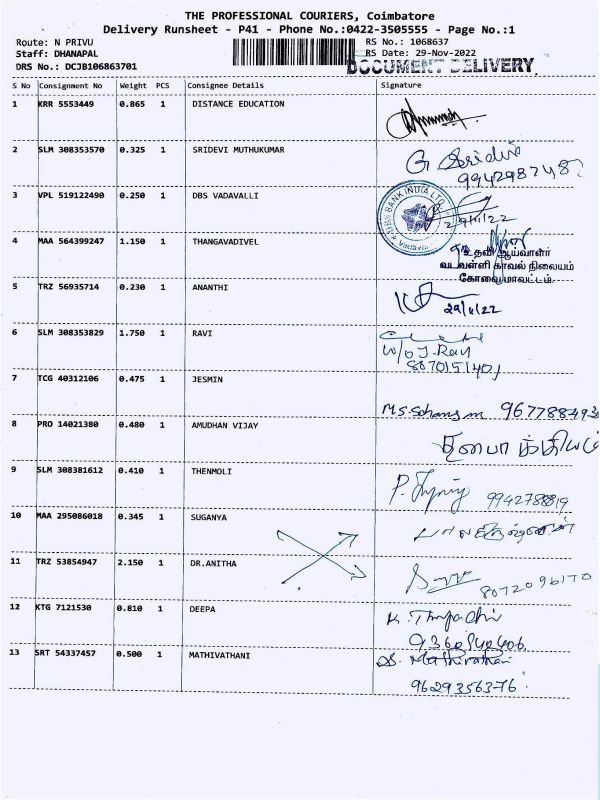 THE PROFESSIONAL COURIERS, Coimbatore
Delivery Runsheet - P41 - Phone No.:0422-3505555 - Page No.:1
Route: N PRIVU
RS No.: 1068637
Staff: DHANAPAL
RS Date: 29-Nov-2022
DRS No.: DCJB106863701
DOCUMENT DELIVERY
S No Consignment No Weight PCS Consignee Details Signature
1 KRR 5553449 0.865 1 DISTANCE EDUCATION
2 SLM 308353570 0.325 1 SRIDEVI MUTHUKUMAR
G Sridevi
3 VPL 519122490 0.250 1 DBS VADAVALLI
DBS BANK INDIA LTD
29/11/22
4 MAA 564399247 1.150 1 THANGAVADIVEL
உதவி ஆய்வாளர்
வடவள்ளி காவல் நிலையம்
கோவை மாவட்டம்.
5 TRZ 56935714 0.230 1 ANANTHI
29/11/22
6 SLM 308353829 1.750 1 RAVI
W/o J. Ravi
8870151401
7 TCG 40312106 0.475 1 JESMIN
8 PRO 14021380 0.480 1 AMUDHAN VIJAY
9 SLM 308381612 0.410 1 THENMOLI
10 MAA 295086018 0.345 1 SUGANYA
11 TRZ 53854947 2.150 1 DR.ANITHA
8072096170
12 KTG 7121530 0.810 1 DEEPA
9360840406
13 SRT 54337457 0.500 1 MATHIVATHANI
S. Mathivathani
9629356376